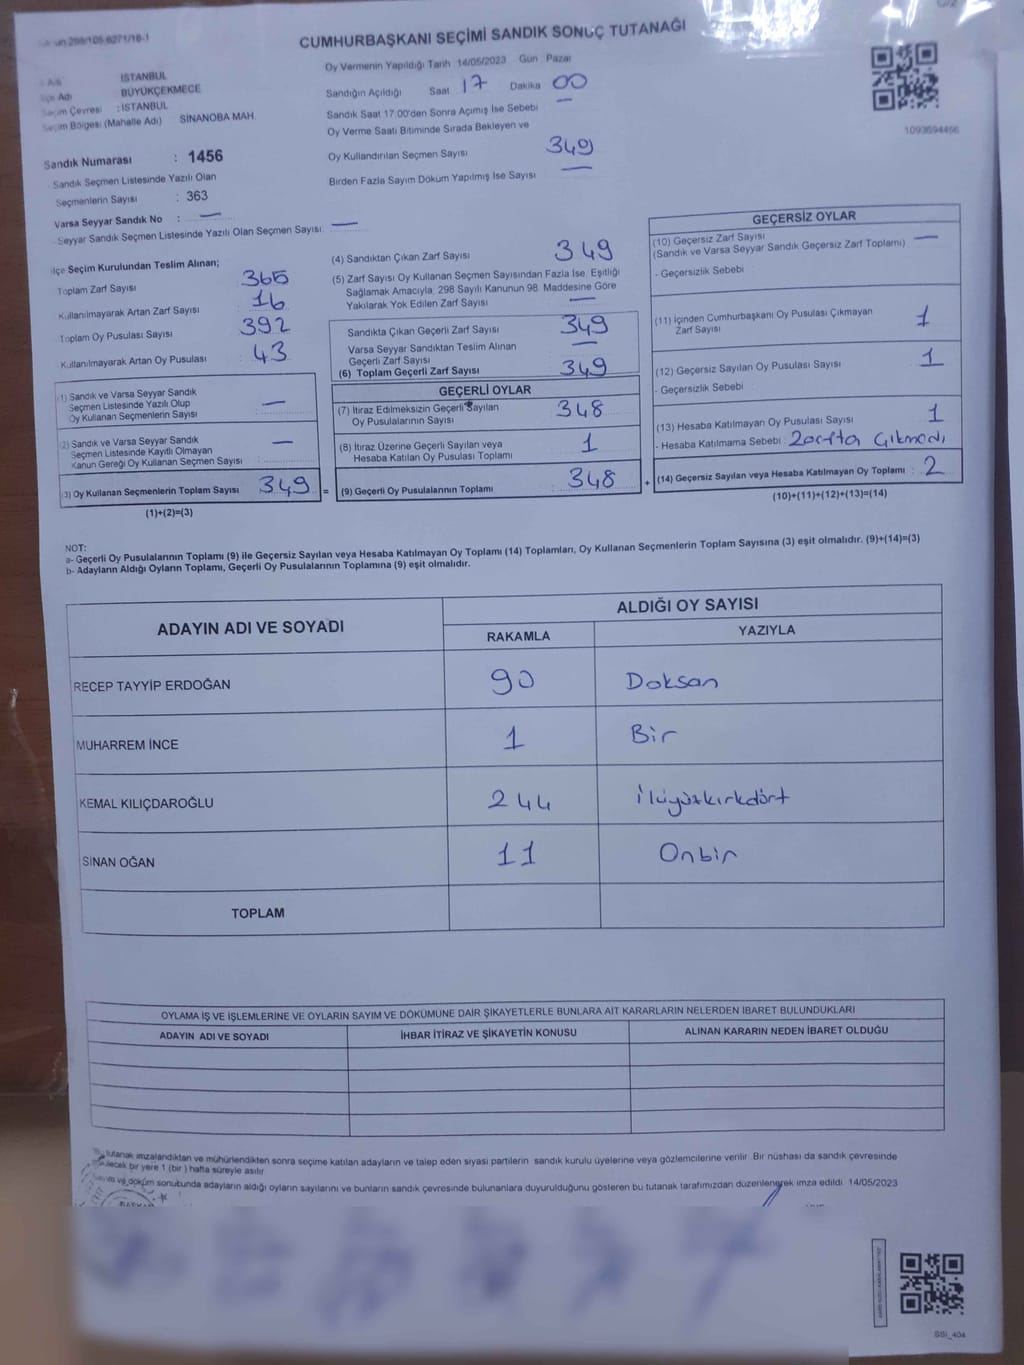 CUMHURBAŞKANI SEÇİMİ SANDIK SONUÇ TUTANAĞI
İSTANBUL
İlçe Adı BÜYÜKÇEKMECE
Seçim Çevresi : İSTANBUL
Seçim Bölgesi (Mahalle Adı) SİNANOBA MAH.
Oy Vermenin Yapıldığı Tarih 14/05/2023 Gün Pazar
Sandığın Açıldığı Saat 17 Dakika 00
Sandık Saat 17:00'den Sonra Açımış İse Sebebi —
Oy Verme Saati Bitiminde Sırada Bekleyen ve
Oy Kullandırılan Seçmen Sayısı 349
Birden Fazla Sayım Döküm Yapılmış İse Sayısı —
1093694466
Sandık Numarası : 1456
Sandık Seçmen Listesinde Yazılı Olan
Seçmenlerin Sayısı : 363
Varsa Seyyar Sandık No : —
Seyyar Sandık Seçmen Listesinde Yazılı Olan Seçmen Sayısı: —
İlçe Seçim Kurulundan Teslim Alınan;
Toplam Zarf Sayısı 365
Kullanılmayarak Artan Zarf Sayısı 16
Toplam Oy Pusulası Sayısı 392
Kullanılmayarak Artan Oy Pusulası 43
(1) Sandık ve Varsa Seyyar Sandık
Seçmen Listesinde Yazılı Olup
Oy Kullanan Seçmenlerin Sayısı —
(2) Sandık ve Varsa Seyyar Sandık
Seçmen Listesinde Kayıtlı Olmayan
Kanun Gereği Oy Kullanan Seçmen Sayısı —
(3) Oy Kullanan Seçmenlerin Toplam Sayısı 349 =
(1)+(2)=(3)
(4) Sandıktan Çıkan Zarf Sayısı 349
(5) Zarf Sayısı Oy Kullanan Seçmen Sayısından Fazla İse, Eşitliği
Sağlamak Amacıyla, 298 Sayılı Kanunun 98. Maddesine Göre
Yakılarak Yok Edilen Zarf Sayısı —
Sandıkta Çıkan Geçerli Zarf Sayısı 349
Varsa Seyyar Sandıktan Teslim Alınan
Geçerli Zarf Sayısı —
(6) Toplam Geçerli Zarf Sayısı 349
GEÇERLİ OYLAR
(7) İtiraz Edilmeksizin Geçerli Sayılan
Oy Pusulasının Sayısı 348
(8) İtiraz Üzerine Geçerli Sayılan veya
Hesaba Katılan Oy Pusulası Toplamı 1
(9) Geçerli Oy Pusulalarının Toplamı 348 +
GEÇERSİZ OYLAR
(10) Geçersiz Zarf Sayısı
(Sandık ve Varsa Seyyar Sandık Geçersiz Zarf Toplamı) —
- Geçersizlik Sebebi
(11) İçinden Cumhurbaşkanı Oy Pusulası Çıkmayan
Zarf Sayısı 1
(12) Geçersiz Sayılan Oy Pusulası Sayısı 1
- Geçersizlik Sebebi
(13) Hesaba Katılmayan Oy Pusulası Sayısı 1
- Hesaba Katılmama Sebebi Zarfta Çıkmadı
(14) Geçersiz Sayılan veya Hesaba Katılmayan Oy Toplamı 2
(10)+(11)+(12)+(13)=(14)
NOT:
a- Geçerli Oy Pusulalarının Toplamı (9) ile Geçersiz Sayılan veya Hesaba Katılmayan Oy Toplamı (14) Toplamları, Oy Kullanan Seçmenlerin Toplam Sayısına (3) eşit olmalıdır. (9)+(14)=(3)
b- Adayların Aldığı Oyların Toplamı, Geçerli Oy Pusulalarının Toplamına (9) eşit olmalıdır.
ADAYIN ADI VE SOYADI
ALDIĞI OY SAYISI
RAKAMLA YAZIYLA
RECEP TAYYİP ERDOĞAN 90 Doksan
MUHARREM İNCE 1 Bir
KEMAL KILIÇDAROĞLU 244 İkiyüzkırkdört
SİNAN OĞAN 11 Onbir
TOPLAM
OYLAMA İŞ VE İŞLEMLERİNE VE OYLARIN SAYIM VE DÖKÜMÜNE DAİR ŞİKAYETLERLE BUNLARA AİT KARARLARIN NELERDEN İBARET BULUNDUKLARI
ADAYIN ADI VE SOYADI İHBAR İTİRAZ VE ŞİKAYETİN KONUSU ALINAN KARARIN NEDEN İBARET OLDUĞU
tutanak imzalandıktan ve mühürlendikten sonra seçime katılan adayların ve talep eden siyasi partilerin sandık kurulu üyelerine veya gözlemcilerine verilir. Bir nüshası da sandık çevresinde
bir yere 1 (bir) hafta süreyle asılır
ve döküm sonubunda adayların aldığı oyların sayılarını ve bunların sandık çevresinde bulunanlara duyurulduğunu gösteren bu tutanak tarafımızdan düzenlenerek imza edildi. 14/05/2023
SSİ_404